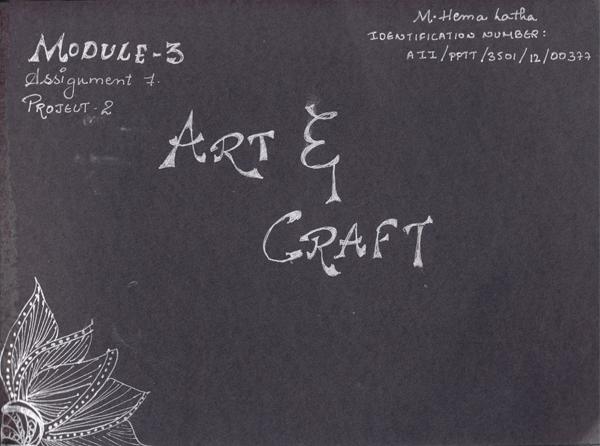 MODULE-3
Assignment 7.
PROJECT-2
M. Hema Latha
IDENTIFICATION NUMBER:
AII/PPTT/3501/12/00377
ART &
CRAFT